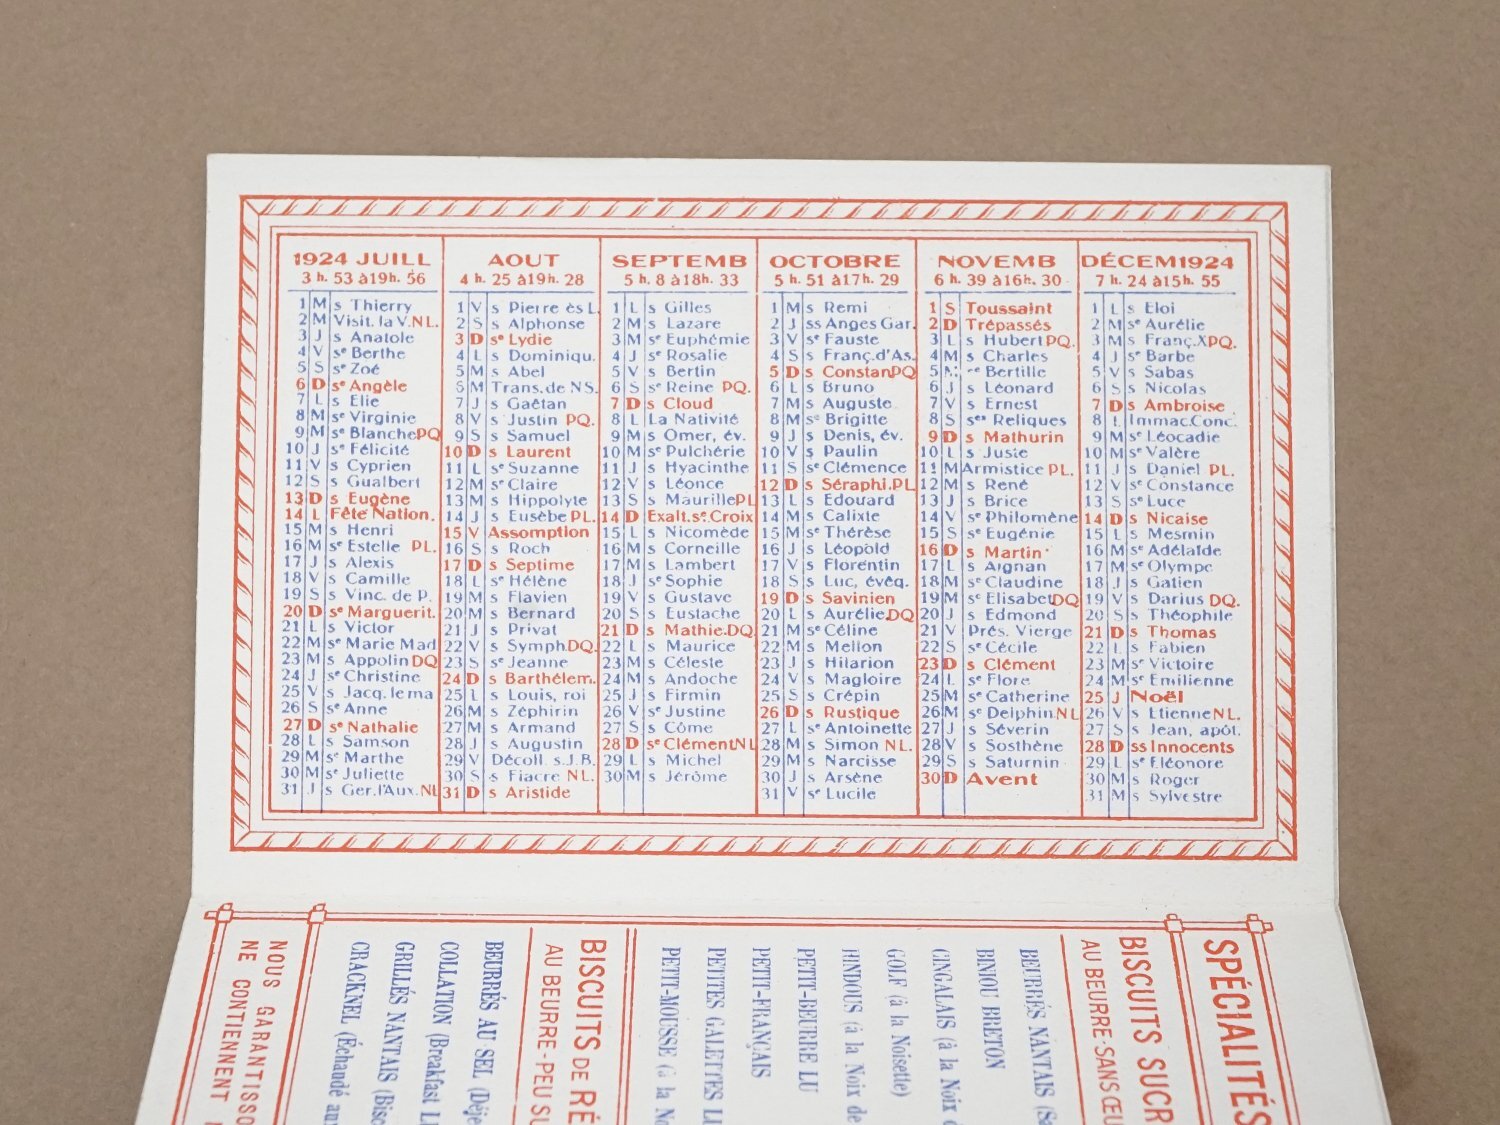 1924 JUILL
3 h. 53 à 19h. 56
1 M s Thierry
2 M Visit. la V. NL.
3 J s Anatole
4 V se Berthe
5 S se Zoé
6 D se Angèle
7 L s Elie
8 M se Virginie
9 M se Blanche PQ
10 J se Félicité
11 V s Cyprien
12 S s Gualbert
13 D s Eugène
14 L Fête Nation.
15 M s Henri
16 M se Estelle PL.
17 J s Alexis
18 V s Camille
19 S s Vinc. de P.
20 D se Marguerit.
21 L s Victor
22 M se Marie Mad
23 M s Appolin DQ
24 J se Christine
25 V s Jacq. le ma
26 S se Anne
27 D se Nathalie
28 L s Samson
29 M se Marthe
30 M se Juliette
31 J s Ger. l'Aux. NL
AOUT
4 h. 25 à 19h. 28
1 V s Pierre ès L.
2 S s Alphonse
3 D se Lydie
4 L s Dominiqu.
5 M s Abel
6 M Trans. de NS.
7 J s Gaëtan
8 V s Justin PQ.
9 S s Samuel
10 D s Laurent
11 L se Suzanne
12 M se Claire
13 M s Hippolyte
14 J s Eusèbe PL.
15 V Assomption
16 S s Roch
17 D s Septime
18 L se Hélène
19 M s Flavien
20 M s Bernard
21 J s Privat
22 V s Symph DQ.
23 S se Jeanne
24 D s Barthélem.
25 L s Louis, roi
26 M s Zéphirin
27 M s Armand
28 J s Augustin
29 V Décoll. s. J. B.
30 S s Fiacre NL.
31 D s Aristide
SEPTEMB
5 h. 8 à 18h. 33
1 L s Gilles
2 M s Lazare
3 M se Euphémie
4 J se Rosalie
5 V s Bertin
6 S se Reine PQ.
7 D s Cloud
8 L La Nativité
9 M s Omer, év.
10 M se Pulchérie
11 J s Hyacinthe
12 V s Léonce
13 S s Maurille PL
14 D Exalt. se. Croix
15 L s Nicomède
16 M s Corneille
17 M s Lambert
18 J se Sophie
19 V s Gustave
20 S s Eustache
21 D s Mathie. DQ.
22 L s Maurice
23 M s Céleste
24 M s Andoche
25 J s Firmin
26 V se Justine
27 S s Côme
28 D se Clément NL
29 L s Michel
30 M s Jérôme
OCTOBRE
5 h. 51 à 17h. 29
1 M s Remi
2 J ss Anges Gar.
3 V se Fauste
4 S s Franç. d'As.
5 D s Constan PQ
6 L s Bruno
7 M s Auguste
8 M se Brigitte
9 J s Denis, év.
10 V s Paulin
11 S se Clémence
12 D s Séraphi. PL
13 L s Edouard
14 M s Calixte
15 M se Thérèse
16 J s Léopold
17 V s Florentin
18 S s Luc, évêq.
19 D s Savinien
20 L s Aurélie DQ
21 M se Céline
22 M s Mellon
23 J s Hilarion
24 V s Magloire
25 S s Crépin
26 D s Rustique
27 L se Antoinette
28 M s Simon NL.
29 M s Narcisse
30 J s Arsène
31 V se Lucile
NOVEMB
6 h. 39 à 16h. 30
1 S Toussaint
2 D Trépassés
3 L s Hubert PQ.
4 M s Charles
5 M se Bertille
6 J s Léonard
7 V s Ernest
8 S ses Reliques
9 D s Mathurin
10 L s Juste
11 M Armistice PL.
12 M s René
13 J s Brice
14 V se Philomène
15 S se Eugénie
16 D s Martin
17 L s Aignan
18 M se Claudine
19 M se Elisabet DQ
20 J s Edmond
21 V Prés. Vierge
22 S se Cécile
23 D s Clément
24 L se Flore
25 M se Catherine
26 M se Delphin. NL
27 J s Séverin
28 V s Sosthène
29 S s Saturnin
30 D Avent
DÉCEM 1924
7 h. 24 à 15h. 55
1 L s Eloi
2 M se Aurélie
3 M s Franç. X PQ.
4 J se Barbe
5 V s Sabas
6 S s Nicolas
7 D s Ambroise
8 L Immac. Conc.
9 M se Léocadie
10 M se Valère
11 J s Daniel PL.
12 V se Constance
13 S se Luce
14 D s Nicaise
15 L s Mesmin
16 M se Adélaïde
17 M se Olympe
18 J s Gatien
19 V s Darius DQ.
20 S s Théophile
21 D s Thomas
22 L s Fabien
23 M se Victoire
24 M se Emilienne
25 J Noël
26 V s Etienne NL.
27 S s Jean, apôt.
28 D ss Innocents
29 L se Eléonore
30 M s Roger
31 M s Sylvestre
SPÉCIALITÉS
BISCUITS SUCR
AU BEURRE-SANS ŒU
BEURRÉS NANTAIS (Sa
BINIOU BRETON
CINGALAIS (à la Noix d
GOLF (à la Noisette)
HINDOUS (à la Noix de
PETIT-BEURRE LU
PETIT-FRANÇAIS
PETITES GALETTES LU
PETIT-MOUSSE (à la No
BISCUITS DE RÉ
AU BEURRE-PEU SU
BEURRÉS AU SEL (Déje
COLLATION (Breakfast L
GRILLÉS NANTAIS (Bisc
CRACKNEL (Échaudé an
NOUS GARANTISSO
NE CONTIENNENT